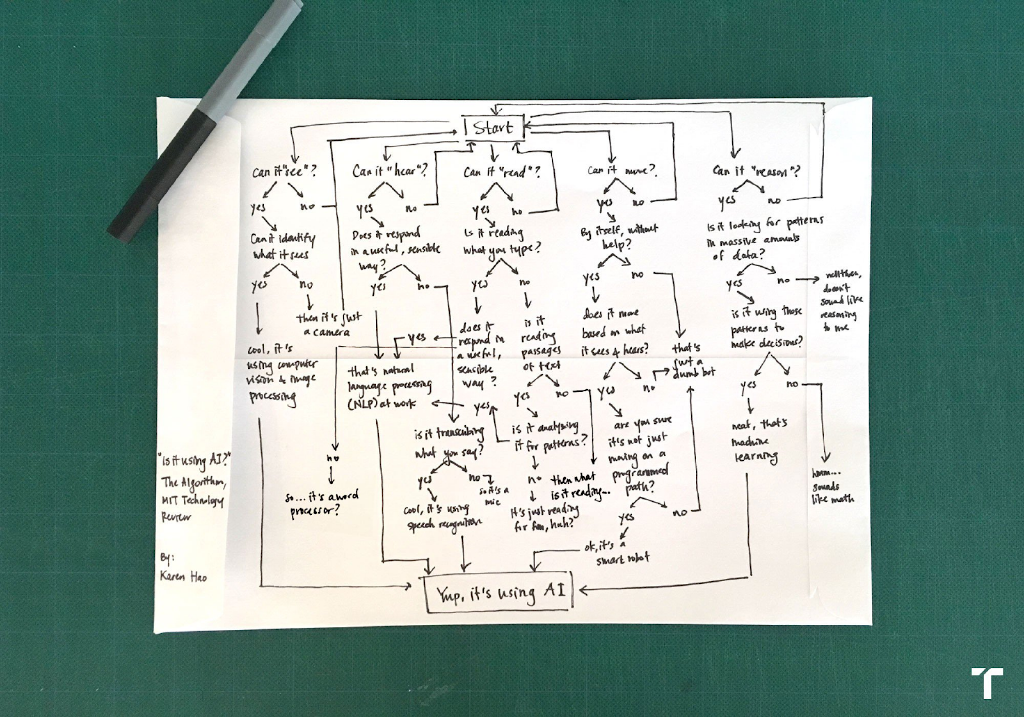 Start
Can it "see"?
yes
no
Can it identify
what it sees
yes
no
then it's just
a camera
cool, it's
using computer
vision & image
processing
Can it "hear"?
yes
no
Does it respond
in a useful, sensible
way?
yes
no
that's natural
language processing
(NLP) at work
is it transcribing
what you say?
yes
no
so it's a
mic
cool, it's using
speech recognition
Can it "read"?
yes
no
Is it reading
what you type?
yes
no
does it
respond in
a useful,
sensible
way?
yes
no
so... it's a word
processor?
is it
reading
passages
of text
yes
no
is it analyzing
it for patterns?
yes
no
it's just reading
for fun, huh?
then what
is it reading...
Can it move?
yes
no
By itself, without
help?
yes
no
does it move
based on what
it sees & hears?
yes
no
that's
just a
dumb bot
are you sure
it's not just
moving on a
programmed
path?
yes
no
ok, it's a
smart robot
Can it "reason"?
yes
no
Is it looking for patterns
in massive amounts
of data?
yes
no
well then,
doesn't
sound like
reasoning
to me
is it using those
patterns to
make decisions?
yes
no
neat, that's
machine
learning
hmm...
sounds
like math
Yup, it's using AI
"Is it using AI?"
The Algorithm,
MIT Technology
Review
By:
Karen Hao
T